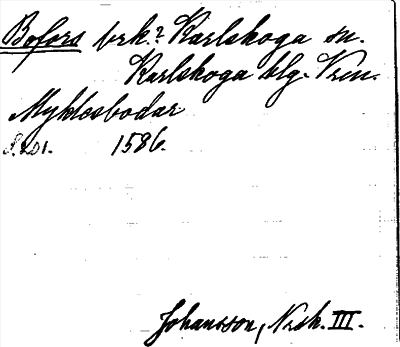 Bofors brk? Karlskoga sn.
Karlskoga blg. Vrm.
Myklesbodar
S. 201. 1586.
Johansson, Nrsk. III.